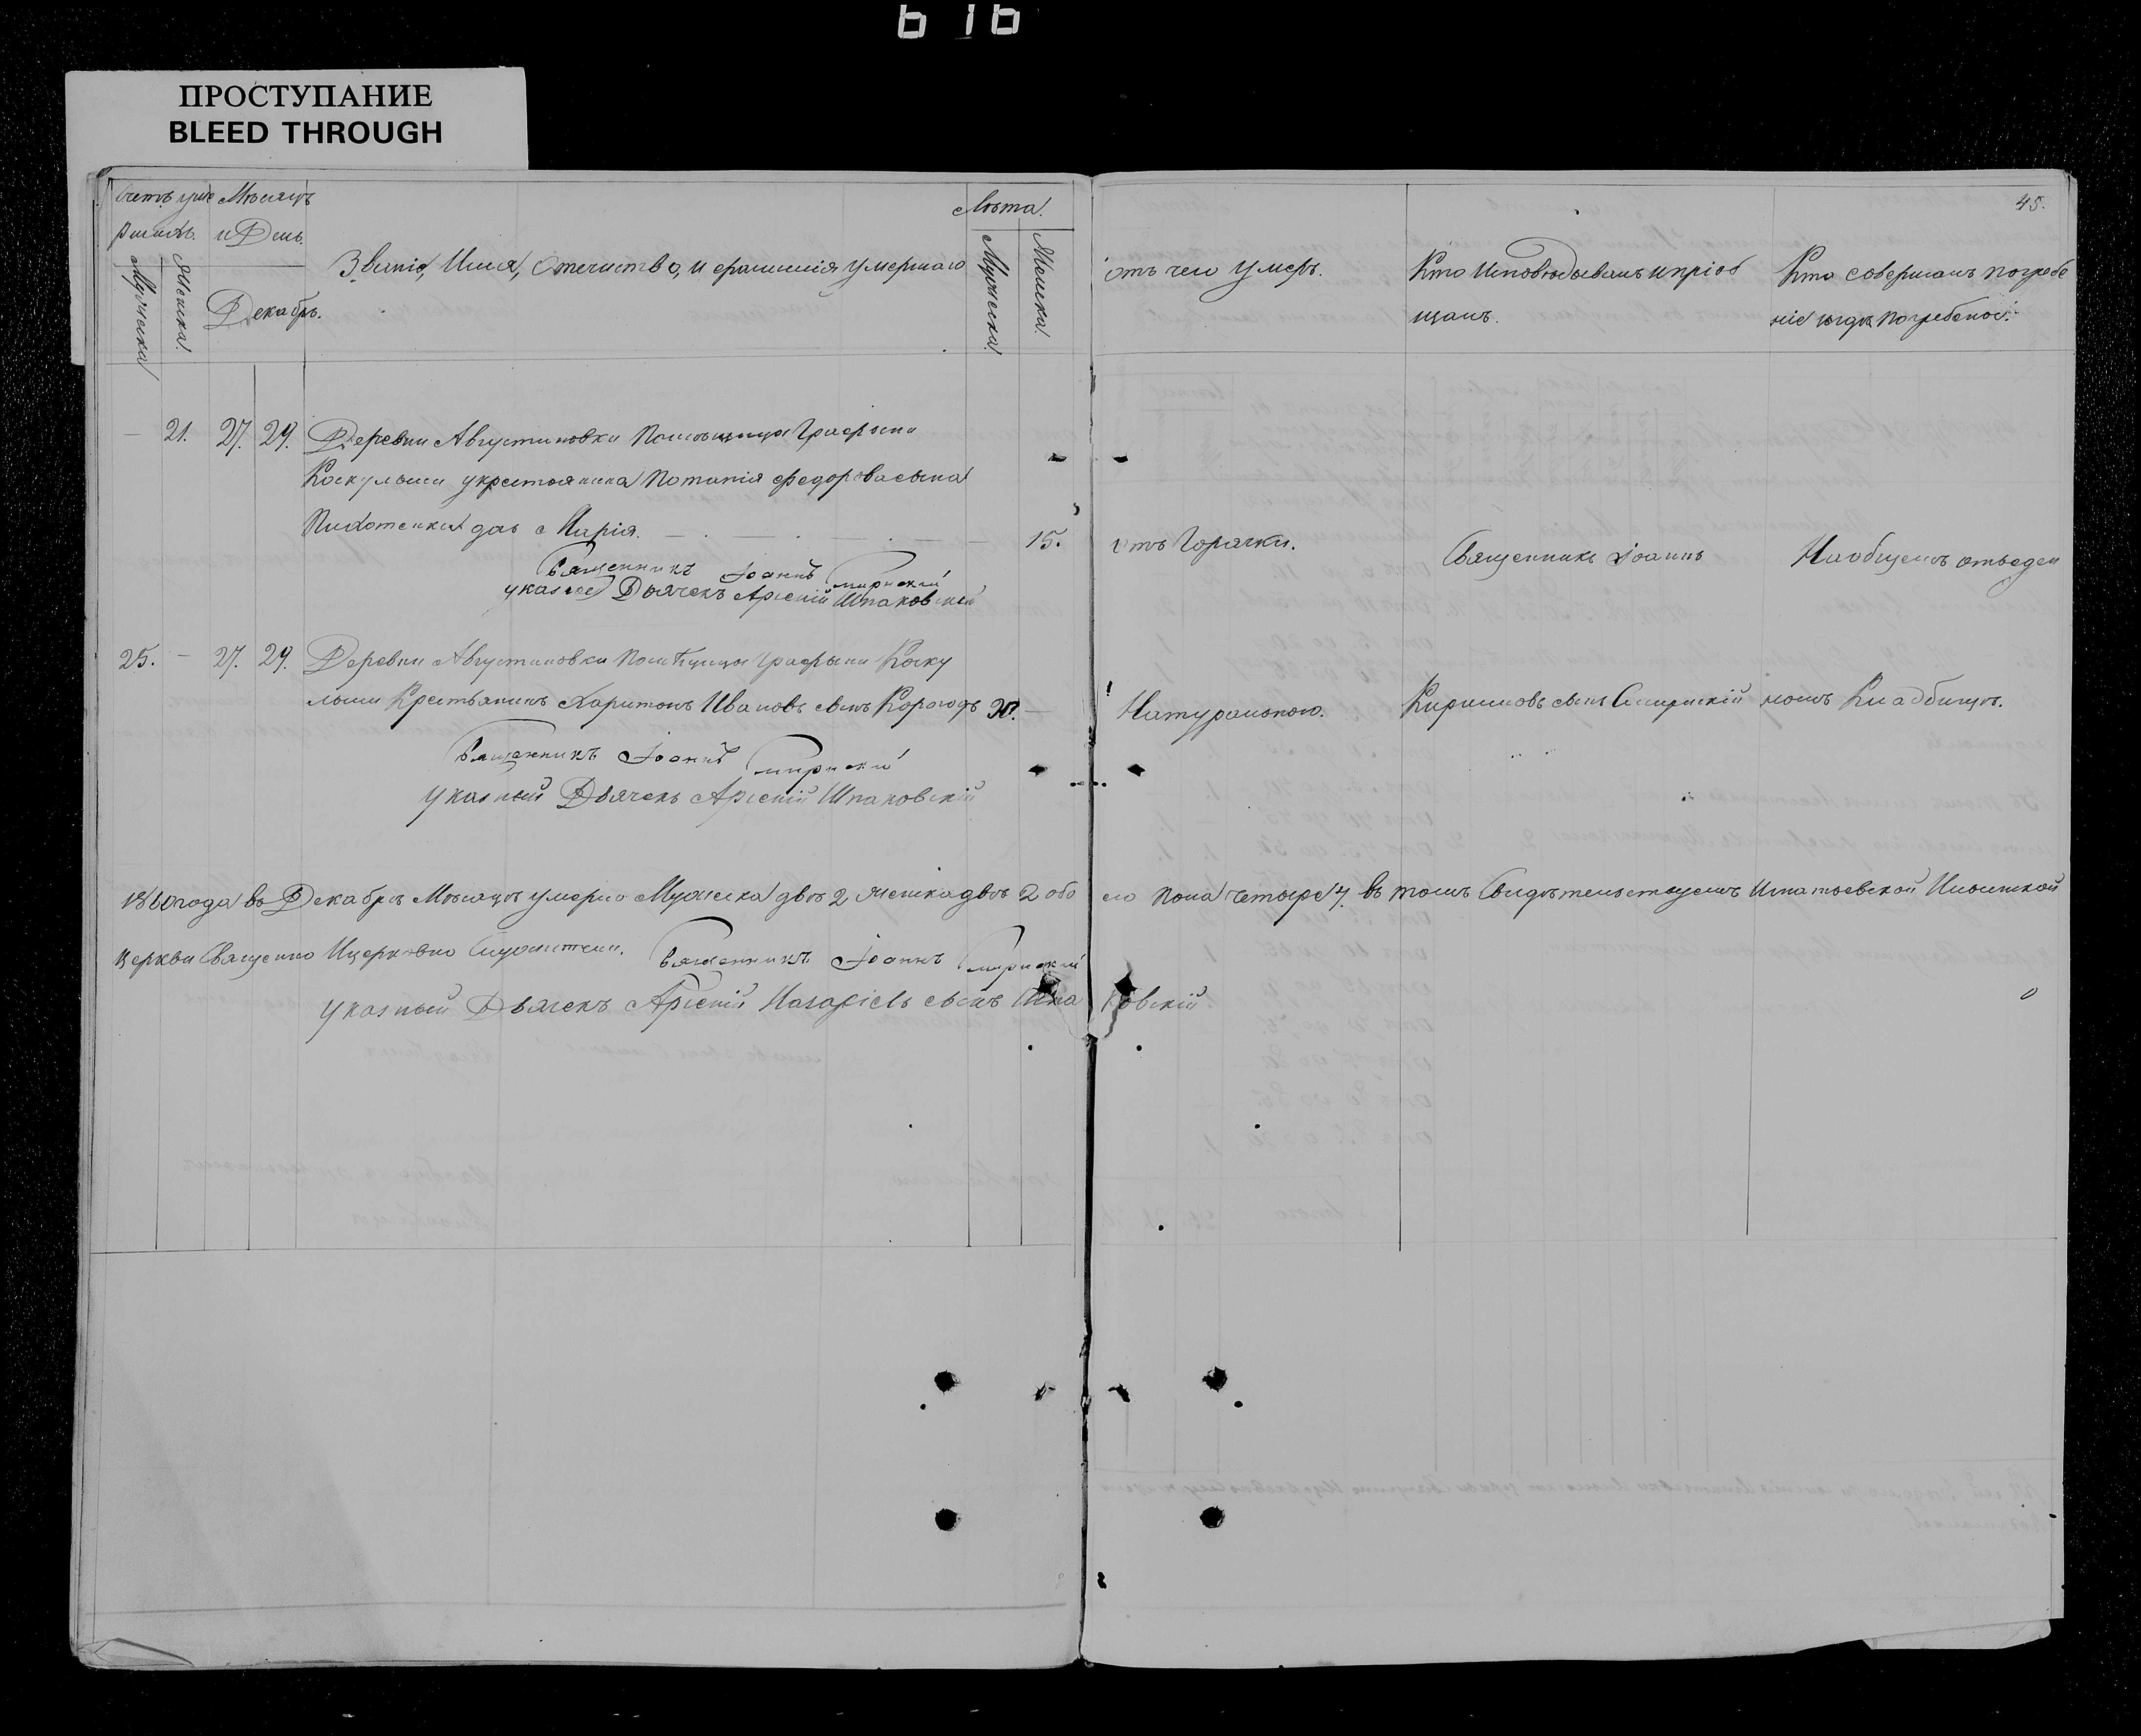 616
ПРОСТУПАНИЕ
BLEED THROUGH
Счетъ уме
ршихъ.
Мужеска
Женска.
Мѣсяцъ
и День.
Декабръ.
Званіе, Имя, Отечиство, и фамилія умершаго
Лѣта.
Мужеска.
Женска.
отъ чего умеръ.
Кто Исповѣдывалъ и пріоб
щалъ.
45.
Кто совершалъ погребе
ніе и гдѣ погребены.
— 21. 27. 29. Деревни Августиновки Помѣщицы Графыни
крестьянина Потапія Федорова сына
дочь Марія. 15. отъ Горячки. Священникъ Іоаннъ На общемъ отведен
Священникъ Іоаннъ
указный Дьячекъ Арсеній Шпаковскій
25. — 27. 29. Деревни Августиновки Помѣщицы Графыни
Крестьянинъ Харитонъ Ивановъ сынъ — Натуральною. сынъ номъ Кладбищѣ.
Священникъ Іоаннъ
Указный Дьячекъ Арсеній Шпаковскій
1860 года въ Декабрѣ Мѣсяцѣ умерло Мужеска двѣ 2 женска двѣ 2 обо его пола четыре 4. въ томъ Свидѣтельствуемъ
церкви Священно И церковно Служители. Священникъ Іоаннъ
Указный Дьячекъ Арсеній сынъ Шпаковскій